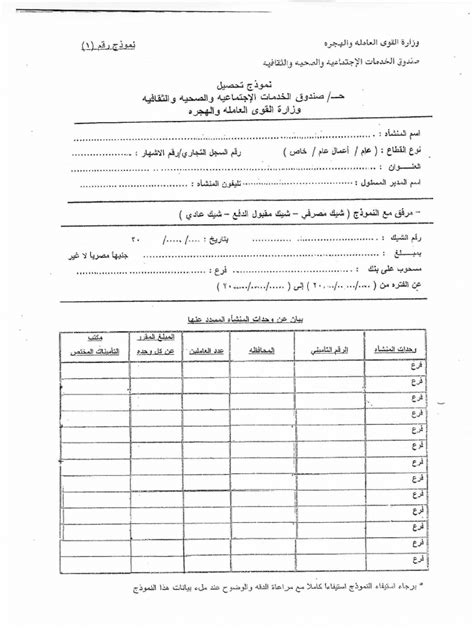 وزارة القوى العامله والهجره
نموذج رقم (١)
صندوق الخدمات الإجتماعيه والصحيه والثقافيه
نموذج تحصيل
حـ/ صندوق الخدمات الإجتماعيه والصحيه والثقافيه
وزارة القوى العامله والهجره
اسم المنشأه :
نوع القطاع : ( عام / أعمال عام / خاص ) رقم السجل التجاري/رقم الاشهار :
العنـــوان :
اسم المدير المسئول : تليفون المنشأه :
– مرفق مع النموذج ( شيك مصرفي – شيك مقبول الدفع – شيك عادي )
رقم الشيك : بتاريخ : ..../...../ ٢٠
بمبـــلغ : جنيها مصريا لا غير
مسحوب على بنك : فرع :
عن الفتره من ( ..../..../..٢٠ ) إلى ( ..../..../...٢٠ )
بيان عن وحدات المنشأه المسدد عنها
وحدات المنشأه | الرقم التأميني | المحافظه | عدد العاملين | المبلغ المقرر عن كل وحده | مكتب التأمينات المختص
فرع
فرع
فرع
فرع
فرع
فرع
فرع
فرع
فرع
فرع
فرع
* برجاء استيفاء النموذج استيفاءً كاملا مع مراعاة الدقه والوضوح عند ملء بيانات هذا النموذج